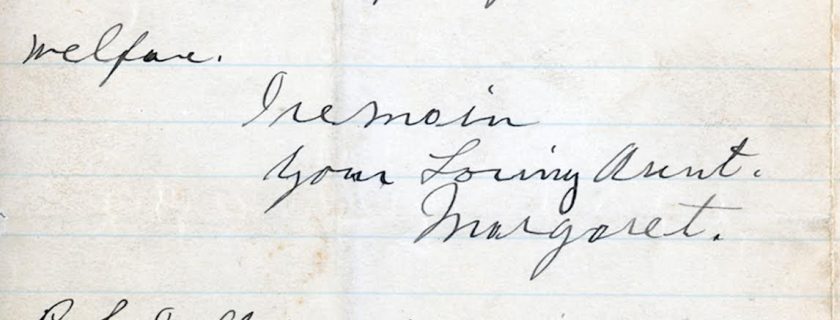 welfare.
I remain
your Loving Aunt.
Margaret.